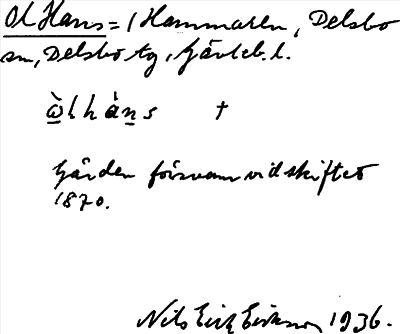 Ol Hans = i Hammaren, Delsbo
sn, Delsbo tg, Gävleb. l.
ɷ̀lhàns †
Gården försvann vid skiftet
1870.
Nils Erik Eriksson 1936.